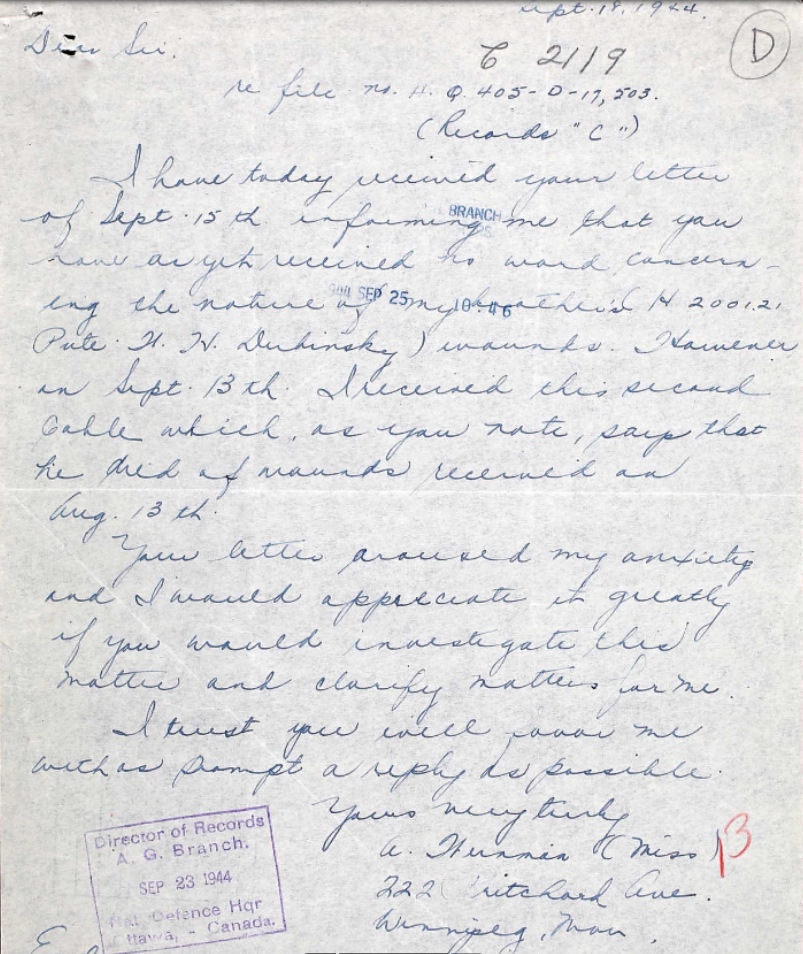 Sept. 18, 1944.
Dear Sir.
C 2119
D
re file no. H. Q. 405-D-17,503.
(Records "C")
I have today received your letter
of Sept. 15 th. informing me that you
BRANCH
have as yet received no word concern-
ing the nature of my brother's (H 200121
SEP 25 10:46
Pvte. H. W. Dubinsky) wounds. However
on Sept. 13 th. I received this second
Cable which, as you note, says that
he died of wounds received on
Aug. 13 th.
Your letter aroused my anxiety
and I would appreciate it greatly
if you would investigate this
matter and clarify matters for me.
I trust you will favor me
with as prompt a reply as possible.
Yours very truly
A. (Miss)
13
222 Pritchard Ave.
Winnipeg, Man.
Director of Records
A. G. Branch.
SEP 23 1944
Nat. Defence Hqr
Ottawa, - Canada.